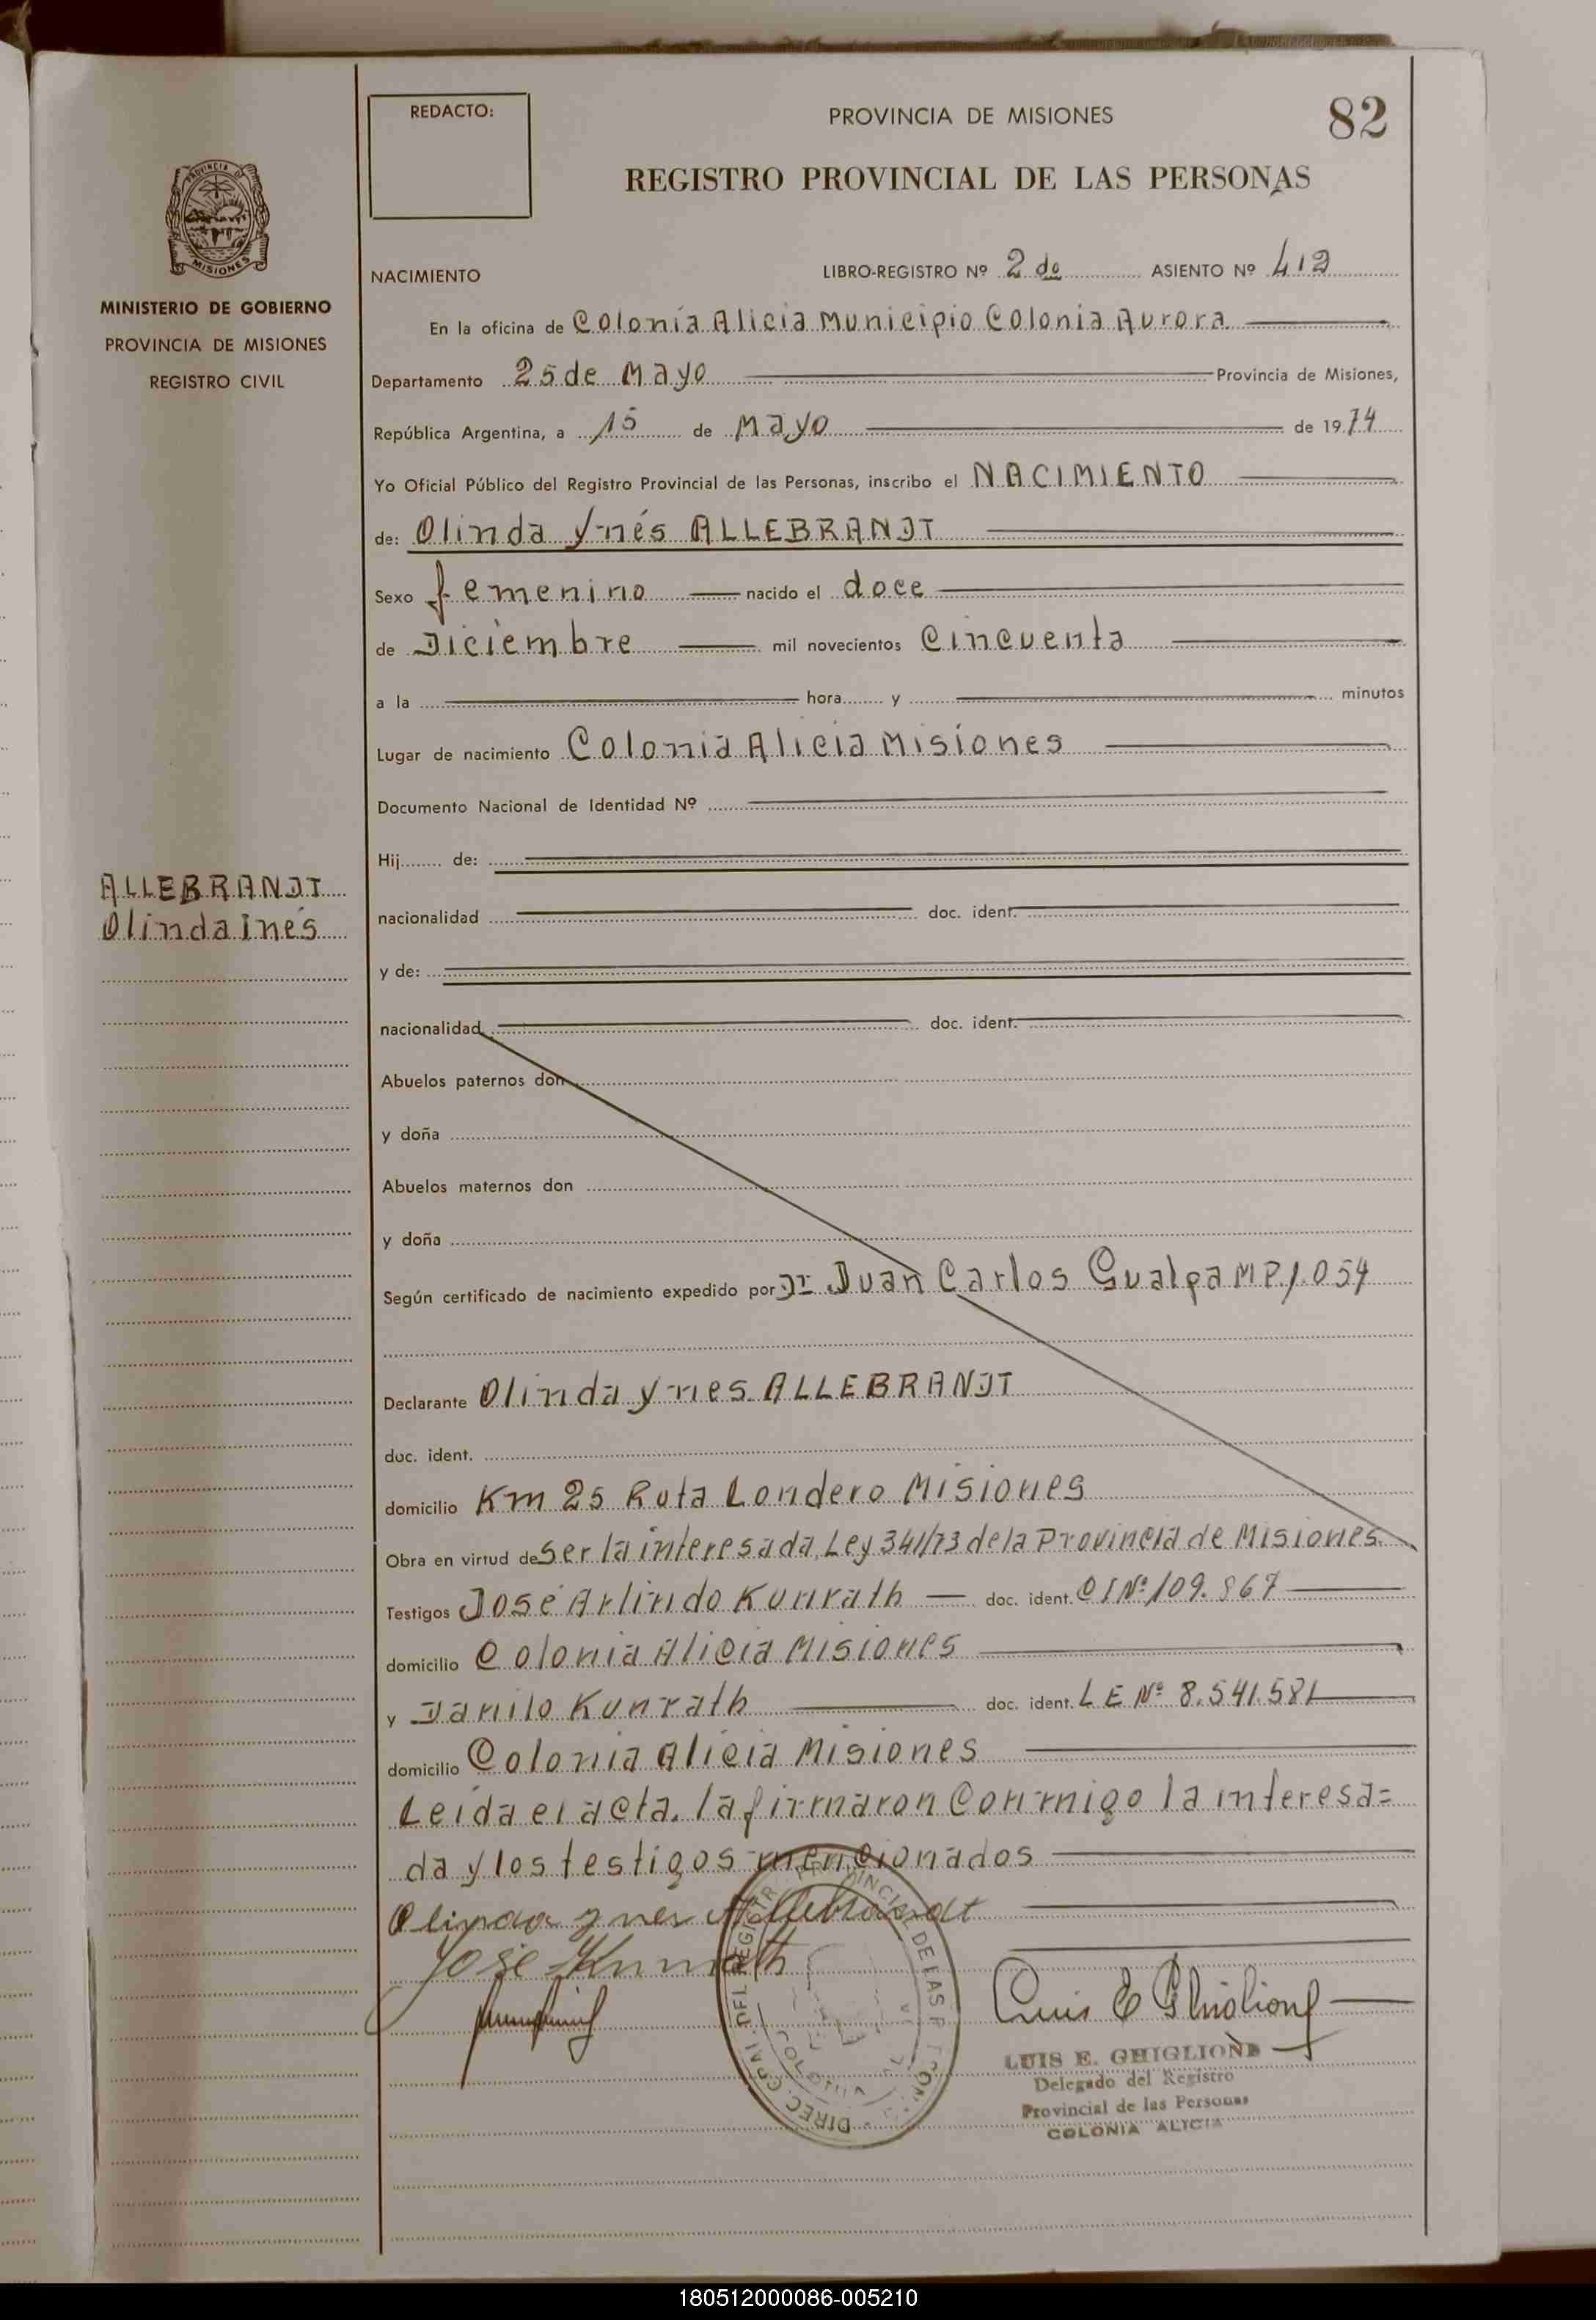 REDACTO:
PROVINCIA DE MISIONES
82
REGISTRO PROVINCIAL DE LAS PERSONAS
PROVINCIA DE
MISIONES
MINISTERIO DE GOBIERNO
PROVINCIA DE MISIONES
REGISTRO CIVIL
NACIMIENTO LIBRO-REGISTRO Nº 2 do ASIENTO Nº 412
En la oficina de Colonia Alicia Municipio Colonia Aurora
Departamento 25 de Mayo Provincia de Misiones,
República Argentina, a 15 de Mayo de 1974
Yo Oficial Público del Registro Provincial de las Personas, inscribo el NACIMIENTO
de: Olinda Ynés ALLEBRANDT
Sexo femenino nacido el doce
de Diciembre mil novecientos Cincuenta
a la hora y minutos
Lugar de nacimiento Colonia Alicia Misiones
Documento Nacional de Identidad Nº
Hij de:
ALLEBRANDT
Olinda Inés
nacionalidad doc. ident.
y de:
nacionalidad doc. ident.
Abuelos paternos don
y doña
Abuelos maternos don
y doña
Según certificado de nacimiento expedido por Dr Juan Carlos Gualpa MP 1.054
Declarante Olinda Ynes ALLEBRANDT
doc. ident.
domicilio Km 25 Ruta Londero Misiones
Obra en virtud de Ser la interesada, Ley 341/73 de la Provincia de Misiones.
Testigos José Arlindo Kunrath doc. ident. CI Nº 109.867
domicilio Colonia Alicia Misiones
y Danilo Kunrath doc. ident. LE Nº 8.541.581
domicilio Colonia Alicia Misiones
Leida el acta, la firmaron Conmigo la interesa=
da y los testigos mencionados
Olinda Ynes Allebrandt
Jose Kunrath
Luis E Ghiglione
LUIS E. GHIGLIONE
Delegado del Registro
Provincial de las Personas
COLONIA ALICIA
180512000086-005210